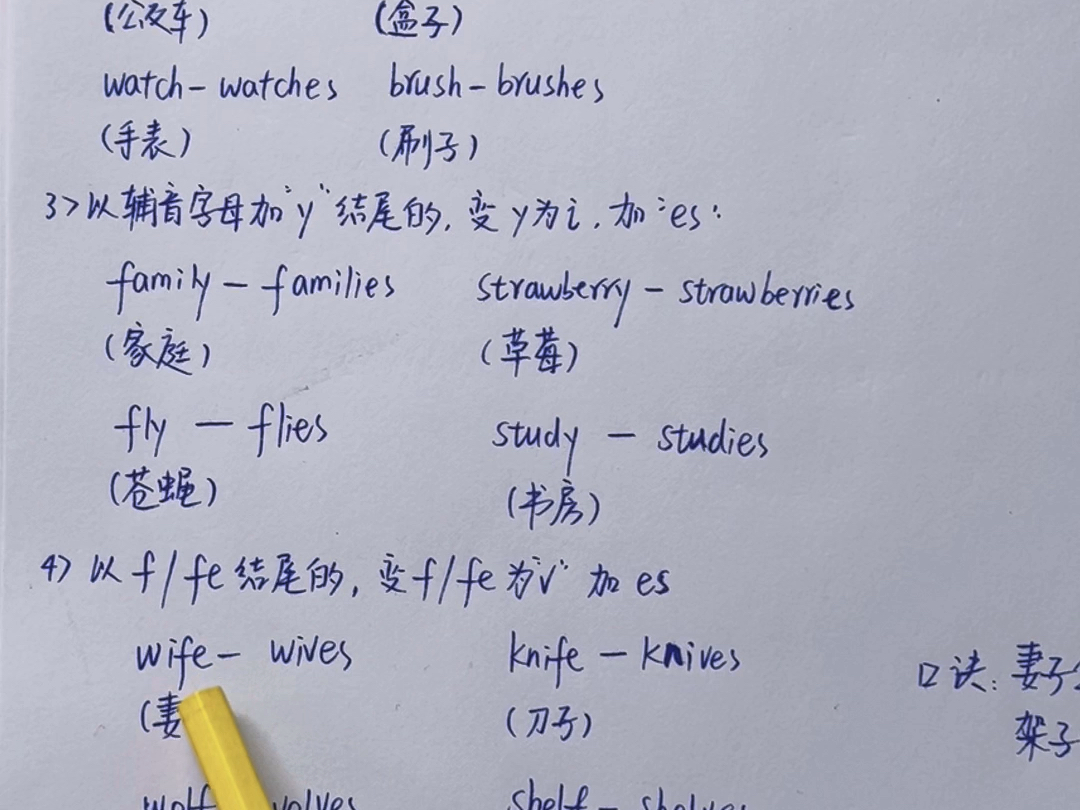 (公交车) (盒子)
watch - watches brush - brushes
(手表) (刷子)
3> 以辅音字母加"y"结尾的, 变y为i, 加"es":
family - families strawberry - strawberries
(家庭) (草莓)
fly - flies study - studies
(苍蝇) (书房)
4> 以f/fe结尾的, 变f/fe为"v"加es
wife - wives knife - knives
(妻 (刀子)
口诀: 妻子
架子
wolf shelf - shelves